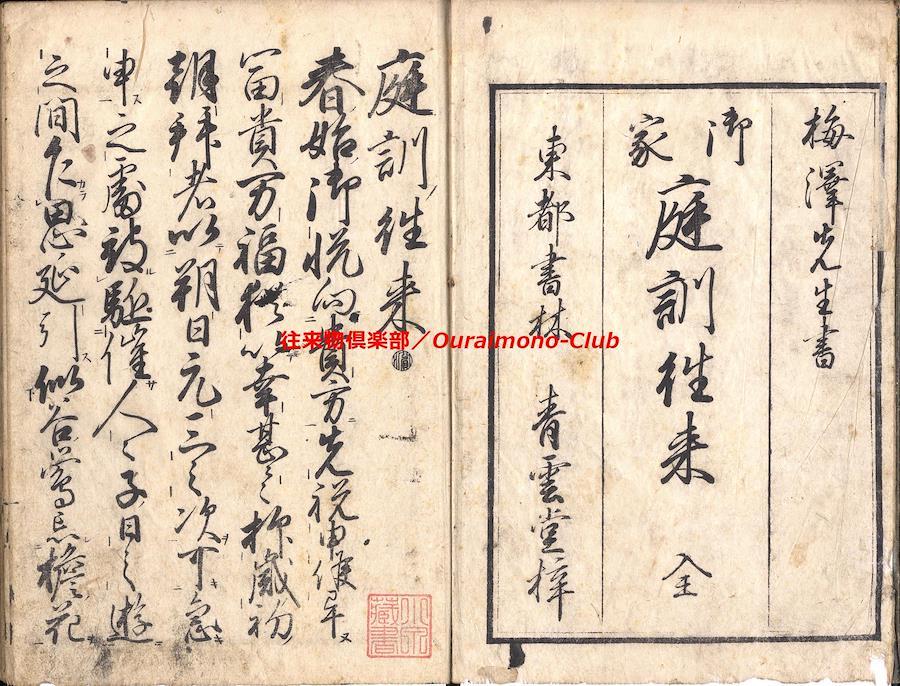 梅澤先生書
御家
庭訓往来 全
東都書林 青雲堂梓
庭訓往来
春始御悦向貴方先祝申候畢
冨貴万福猶以幸甚々抑歳初
朝拝者以朔日元三之次可急
申之處被駈催人々子日之遊
之間乍思延引似谷鶯忘檐花
藏書
往来物倶楽部／Ouraimono-Club